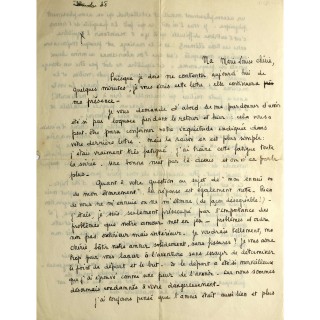 Ma Marie Louise chérie,
Puisque je dois me contenter aujourd'hui de
quelques minutes, je vous écris cette lettre : elle continuera
ma présence.-
Je vous demande d'abord de me pardonner d'avoir
été si peu loquace pendant le retour d'hier : cela vous a
peut être paru confirmer votre inquiétude indiquée dans
votre dernière lettre - mais la raison en est plus simple :
j'étais vraiment très fatigué. J'ai traîné cette fatigue toute
la soirée. Une bonne nuit par là dessus et on n'en parle
plus.-
Quant à votre question au sujet de "mon ennui ou
de mon étonnement" la réponse est également nette. Rien
de vous ne m'ennuie ou ne m'étonne (de façon désagréable!) -
J'étais, je suis seulement préoccupé par l'importance des
problèmes que notre amour met en jeu - problèmes d'ordre
non pas intérieur mais extérieur. Je voudrais tellement, ma
chérie bâtir notre amour solidement, sans fissures! Je vous aime
trop pour vous lancer à l'aventure sans essayer de déterminer
le point de départ et le but. - Le départ a été si merveilleux
que j'ai éprouvé comme une peur de l'avenir. - Car nous sommes
désormais condamnés à vivre dangereusement.
J'ai toujours pensé que l'amour était aussi bien et plus